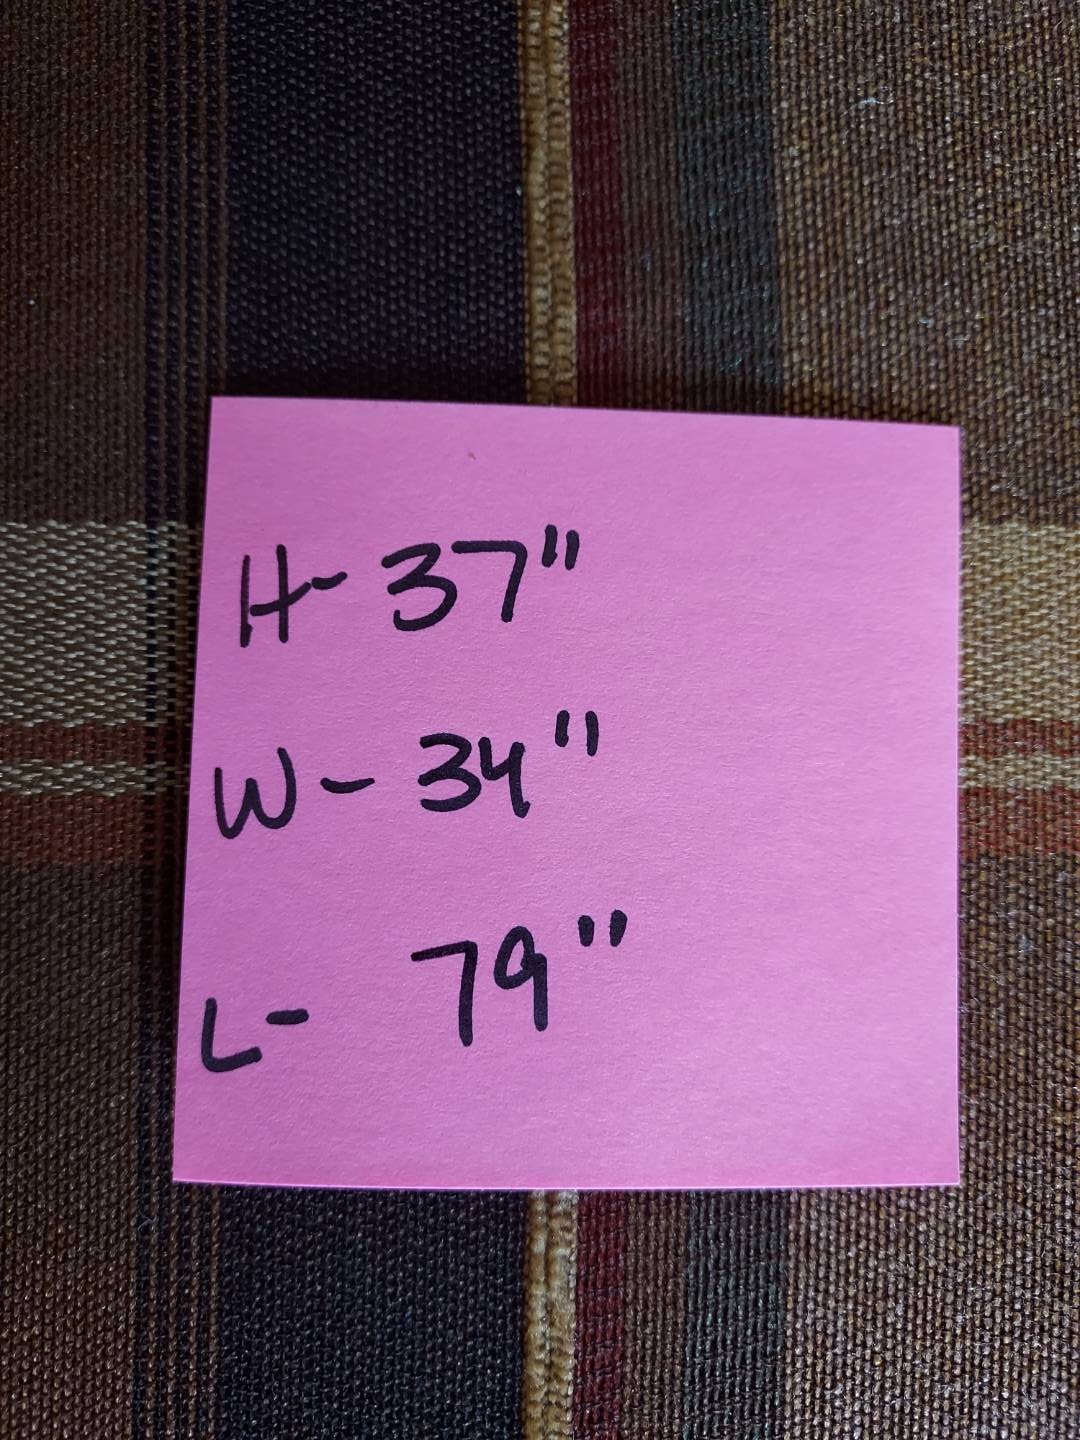 H- 37"
W- 34"
L- 79"